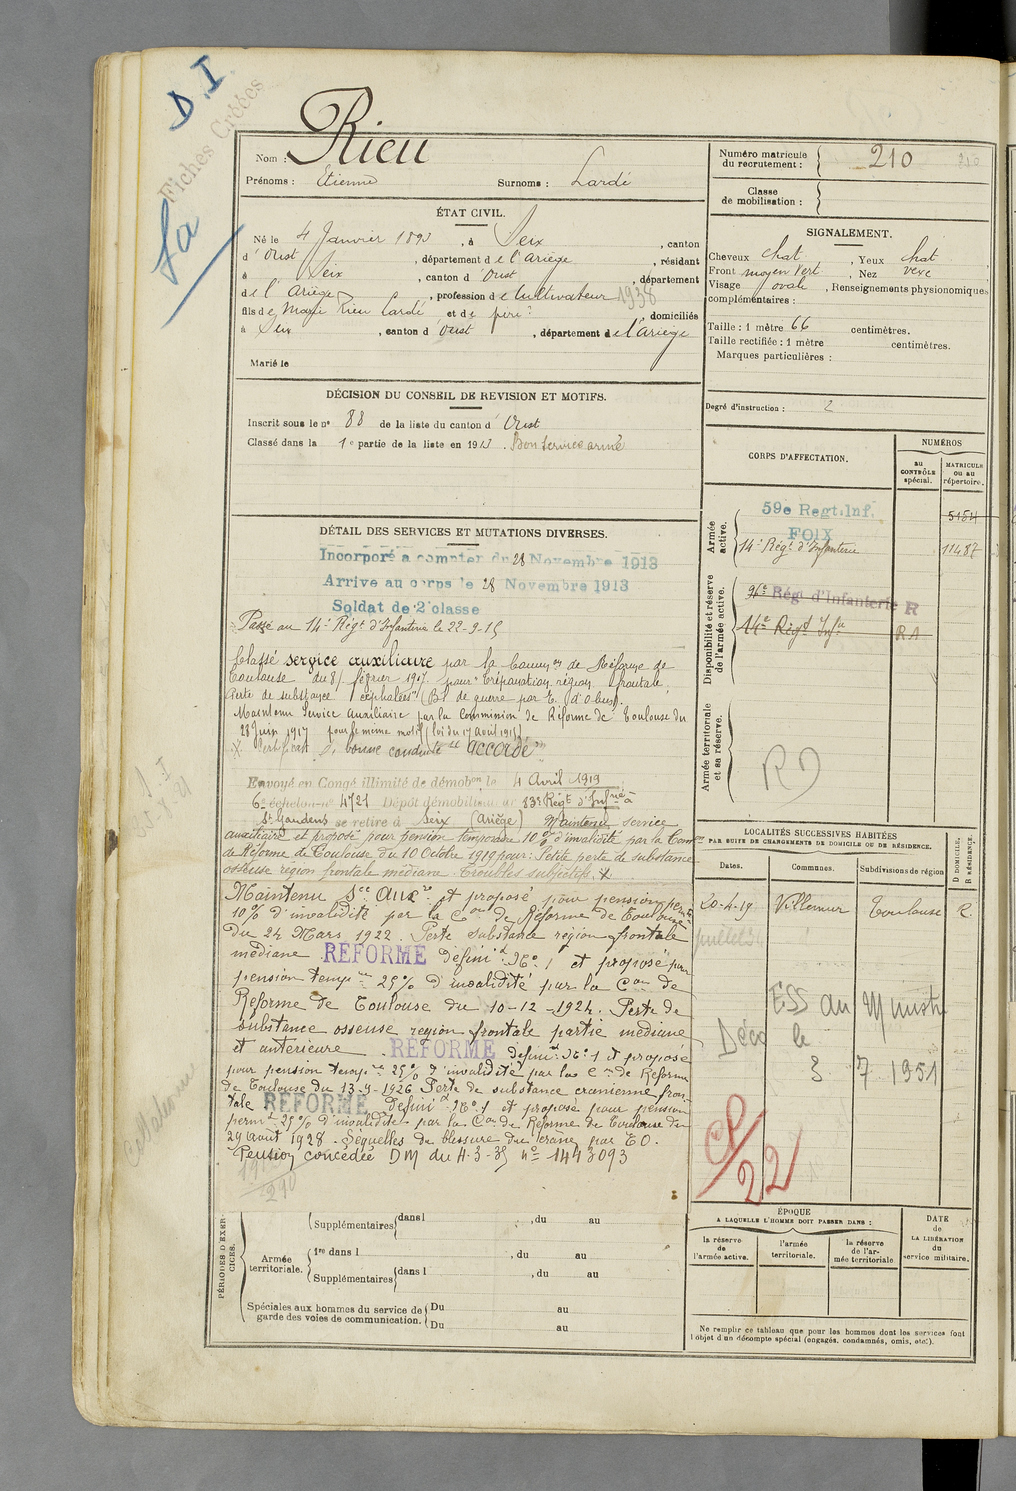 D.I
Fiches Créées
fa
Nom : Rieu
Prénoms : Etienne Surnoms : Lardé
ÉTAT CIVIL.
Né le 4 Janvier 1893, à Seix, canton
d'Oust, département de l'Ariège, résidant
à Seix, canton d'Oust, département
de l'Ariège, profession de Cultivateur 1938
fils de Marie Rieu Lardé et de père ?, domiciliés
à Seix, canton d'Oust, département de l'Ariège
Marié le
DÉCISION DU CONSEIL DE REVISION ET MOTIFS.
Inscrit sous le no 88 de la liste du canton d'Oust
Classé dans la 1e partie de la liste en 1913. Bon service armé
DÉTAIL DES SERVICES ET MUTATIONS DIVERSES.
Incorporé a compter du 28 Novembre 1913
Arrive au corps le 28 Novembre 1913
Soldat de 2e classe
Passé au 14e Régt d'Infanterie le 22-9-15
Classé service auxiliaire par la Common de Réforme de
Toulouse du 8 février 1917 pour "trépanation région frontale,
Perte de substance, céphalées" (Bl. de guerre par E. d'obus).
Maintenu Service Auxiliaire par la Commission de Réforme de Toulouse du
28 Juin 1917 pour le même motif (loi du 17 août 1915).
X Certificat de bonne conduite "accordé"
Envoyé en Congé illimité de démobon le 4 Avril 1919
6e échelon no 4721 Dépôt démobilisateur 83e Régt d'Infrie à
St Gaudens se retire à Seix (Ariège) Maintenu service
auxiliaire et proposé pour pension temporaire 10% d'invalidité par la Comon
de Réforme de Toulouse du 10 Octobre 1919 pour : Petite perte de substance
osseuse région frontale médiane. Troubles subjectifs. X
Maintenu Sce Auxre et proposé pour pension permte
10% d'invalidité par la Con de Réforme de Toulouse
du 24 Mars 1922. Perte substance région frontale
médiane. RÉFORMÉ définit No 1 et proposé pour
pension tempre 25% d'invalidité par la Con de
Réforme de Toulouse du 10-12-1924. Perte de
substance osseuse région frontale partie médiane
et antérieure. RÉFORMÉ définit No 1 et proposé
pour pension tempre 25% d'invalidité par la Con de Réforme
de Toulouse du 13-9-1926 Perte de substance cranienne fron-
tale RÉFORMÉ définit No 1 et proposé pour pension
permte 25% d'invalidité par la Con de Réforme de Toulouse du
29 août 1928. Séquelles de blessure du crane par EO.
Pension concédée DM du 4-3-35 no 1443093
PÉRIODES D'EXERCICES.
Supplémentaires dans l , du au
Armée territoriale.
1re dans l , du au
Supplémentaires dans l , du au
Spéciales aux hommes du service de garde des voies de communication.
Du au
Du au
Numéro matricule du recrutement : 210
Classe de mobilisation :
SIGNALEMENT.
Cheveux chat, Yeux chat,
Front moyen Vert, Nez vexe
Visage ovale, Renseignements physionomiques
complémentaires :
Taille : 1 mètre 66 centimètres.
Taille rectifiée : 1 mètre centimètres.
Marques particulières :
Degré d'instruction : 2
CORPS D'AFFECTATION.
NUMÉROS
au CONTRÔLE spécial.
MATRICULE ou au répertoire.
Armée active.
59e Regt. Inf. 5184
FOIX
14e Régt d'Infanterie 11487
Disponibilité et réserve de l'armée active.
96e Régt d'Infanterie R
14e Régt Infie RA
Armée territoriale et sa réserve.
RD
LOCALITÉS SUCCESSIVES HABITÉES
PAR SUITE DE CHANGEMENTS DE DOMICILE OU DE RÉSIDENCE.
Dates. Communes. Subdivisions de région D DOMICILE. R RÉSIDENCE.
20-4-19 Villemur Toulouse R.
ESS au Minist
Déco le
3 7 1951
CP/22
ÉPOQUE
A LAQUELLE L'HOMME DOIT PASSER DANS :
la réserve de l'armée active.
l'armée territoriale.
la réserve de l'armée territoriale
DATE de LA LIBÉRATION du service militaire.
Ne remplir ce tableau que pour les hommes dont les services font
l'objet d'un décompte spécial (engagés, condamnés, omis, etc.).